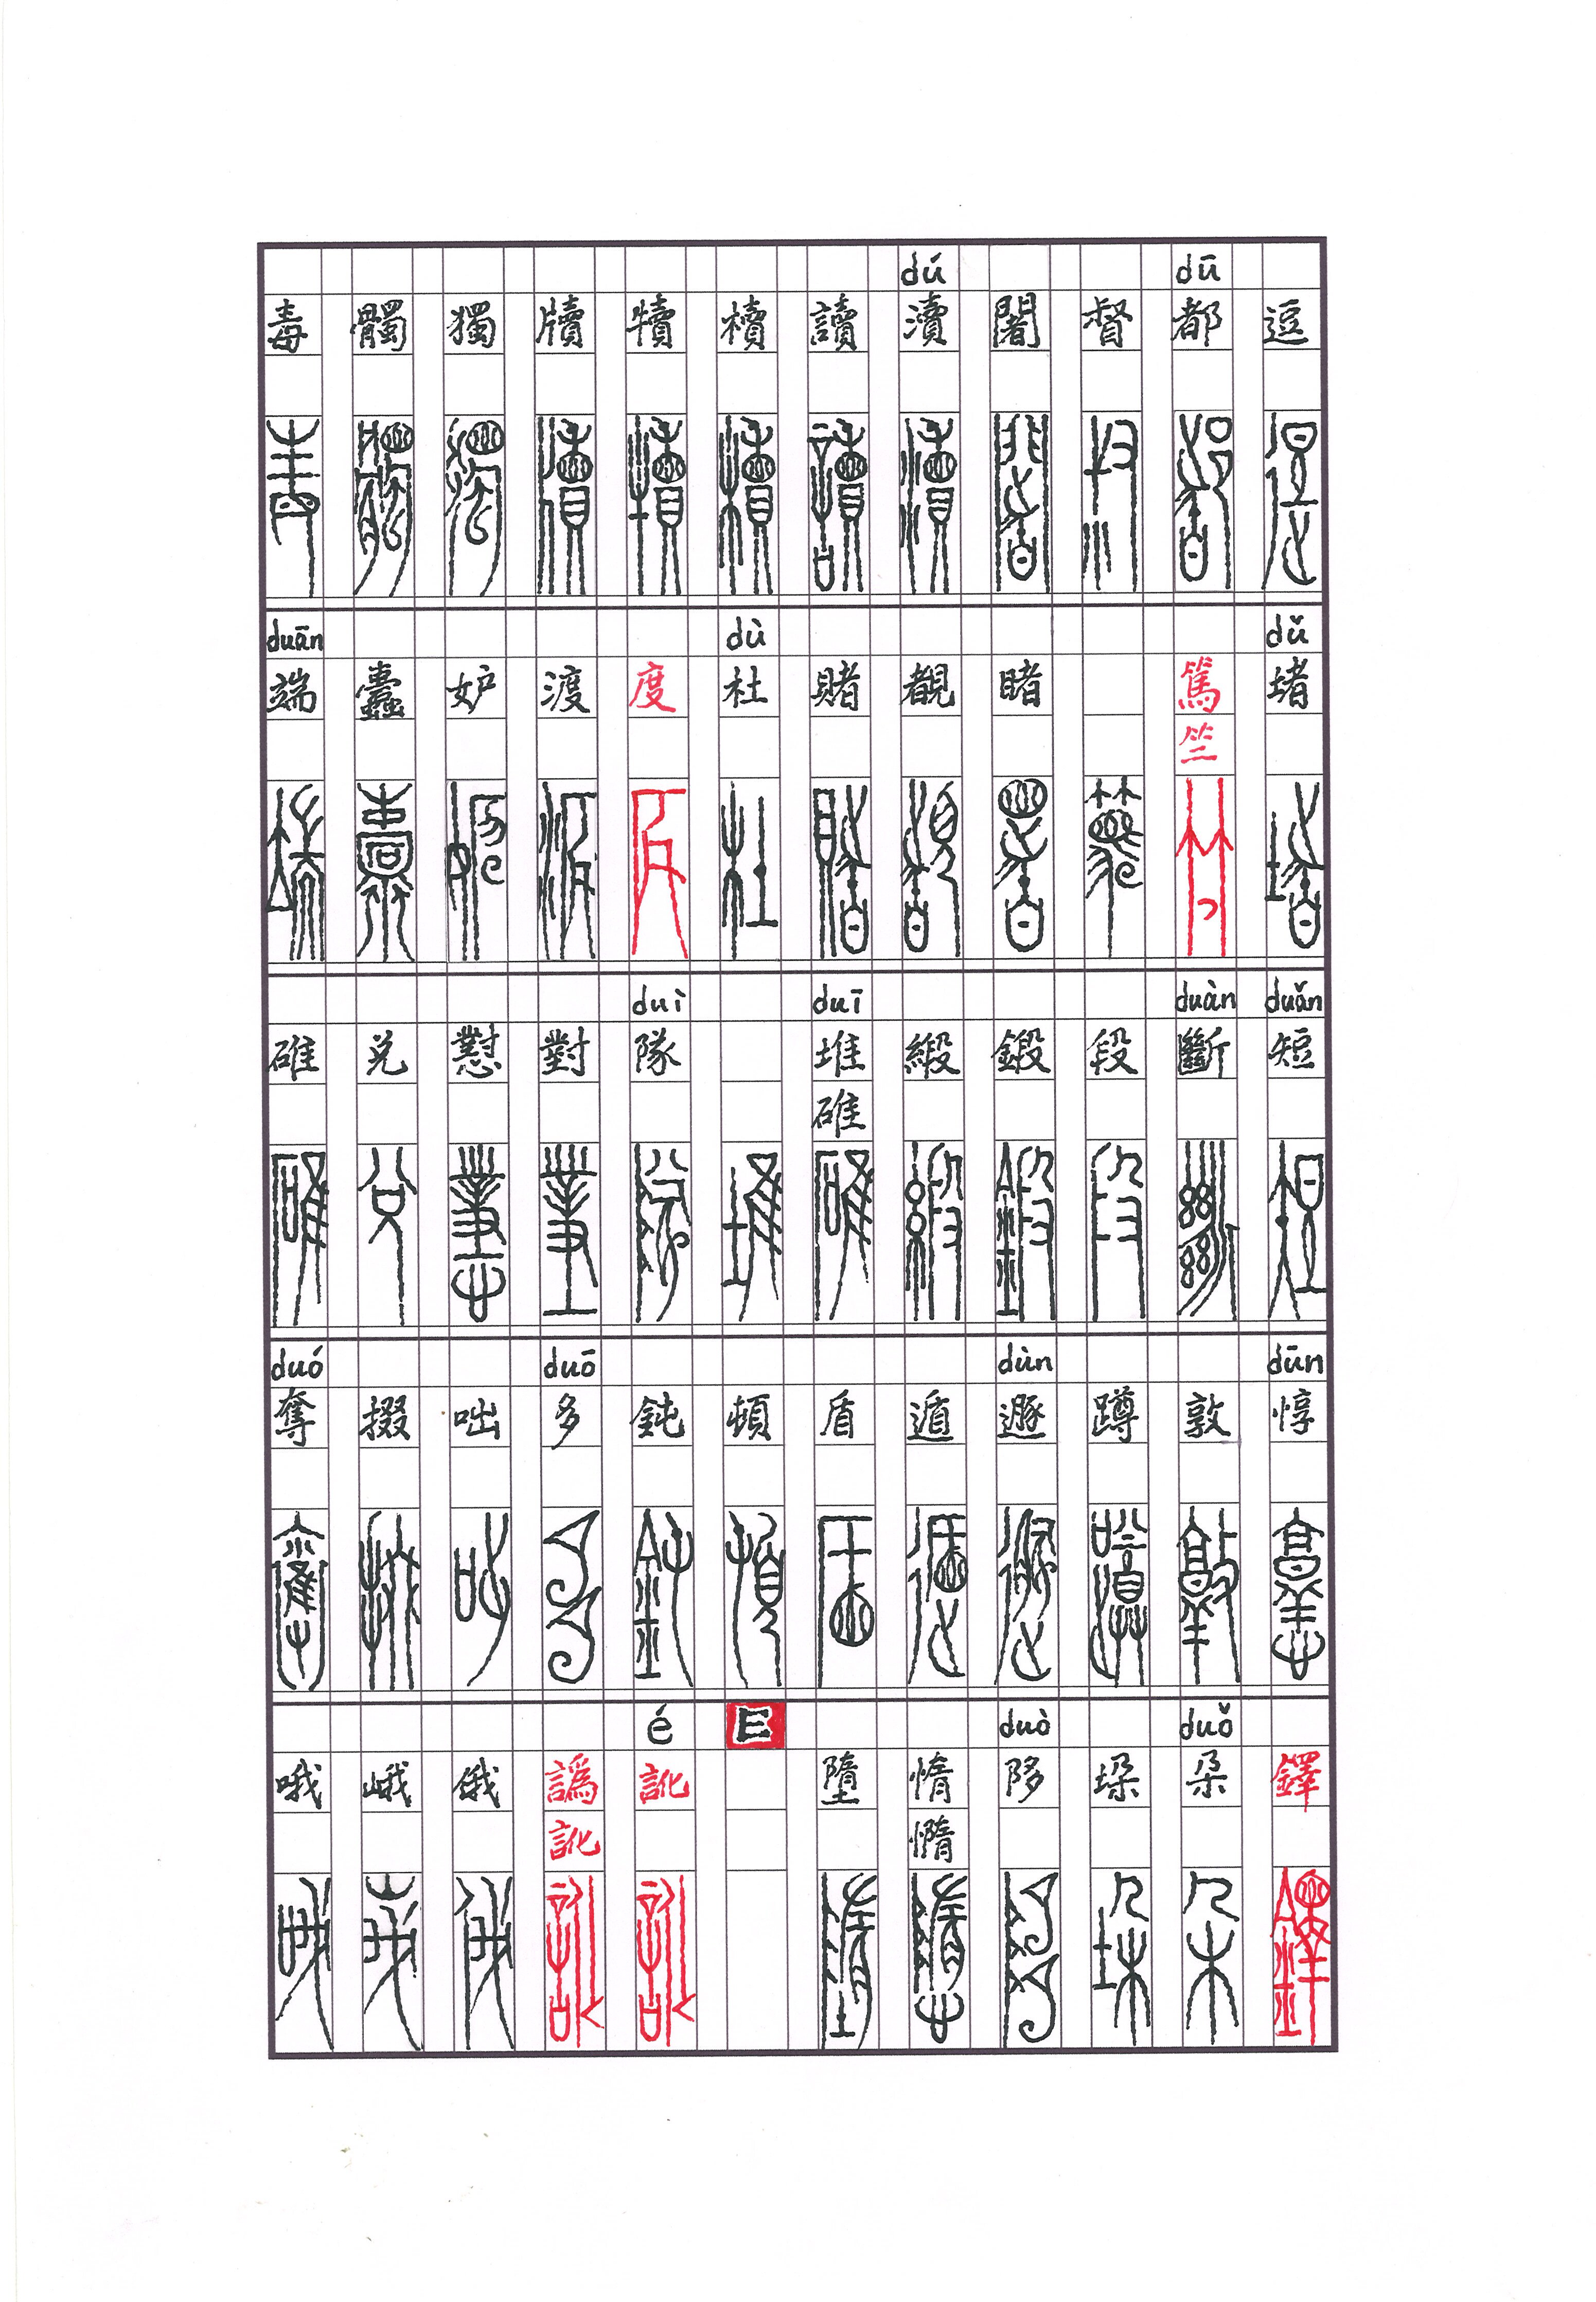 dū dú
逗 都 督 闍 瀆 讀 櫝 犢 牘 獨 髑 毒
dǔ dù duān
堵 篤 睹 覩 賭 杜 度 渡 妒 蠹 端
竺
duǎn duàn duī duì
短 斷 段 鍛 緞 堆 隊 對 懟 兌 碓
碓
dūn dùn duō duó
惇 敦 蹲 遯 遁 盾 頓 鈍 多 咄 掇 奪
duǒ duò E é
鐸 朵 垛 陊 惰 墮 訛 譌 俄 峨 哦
憜 訛